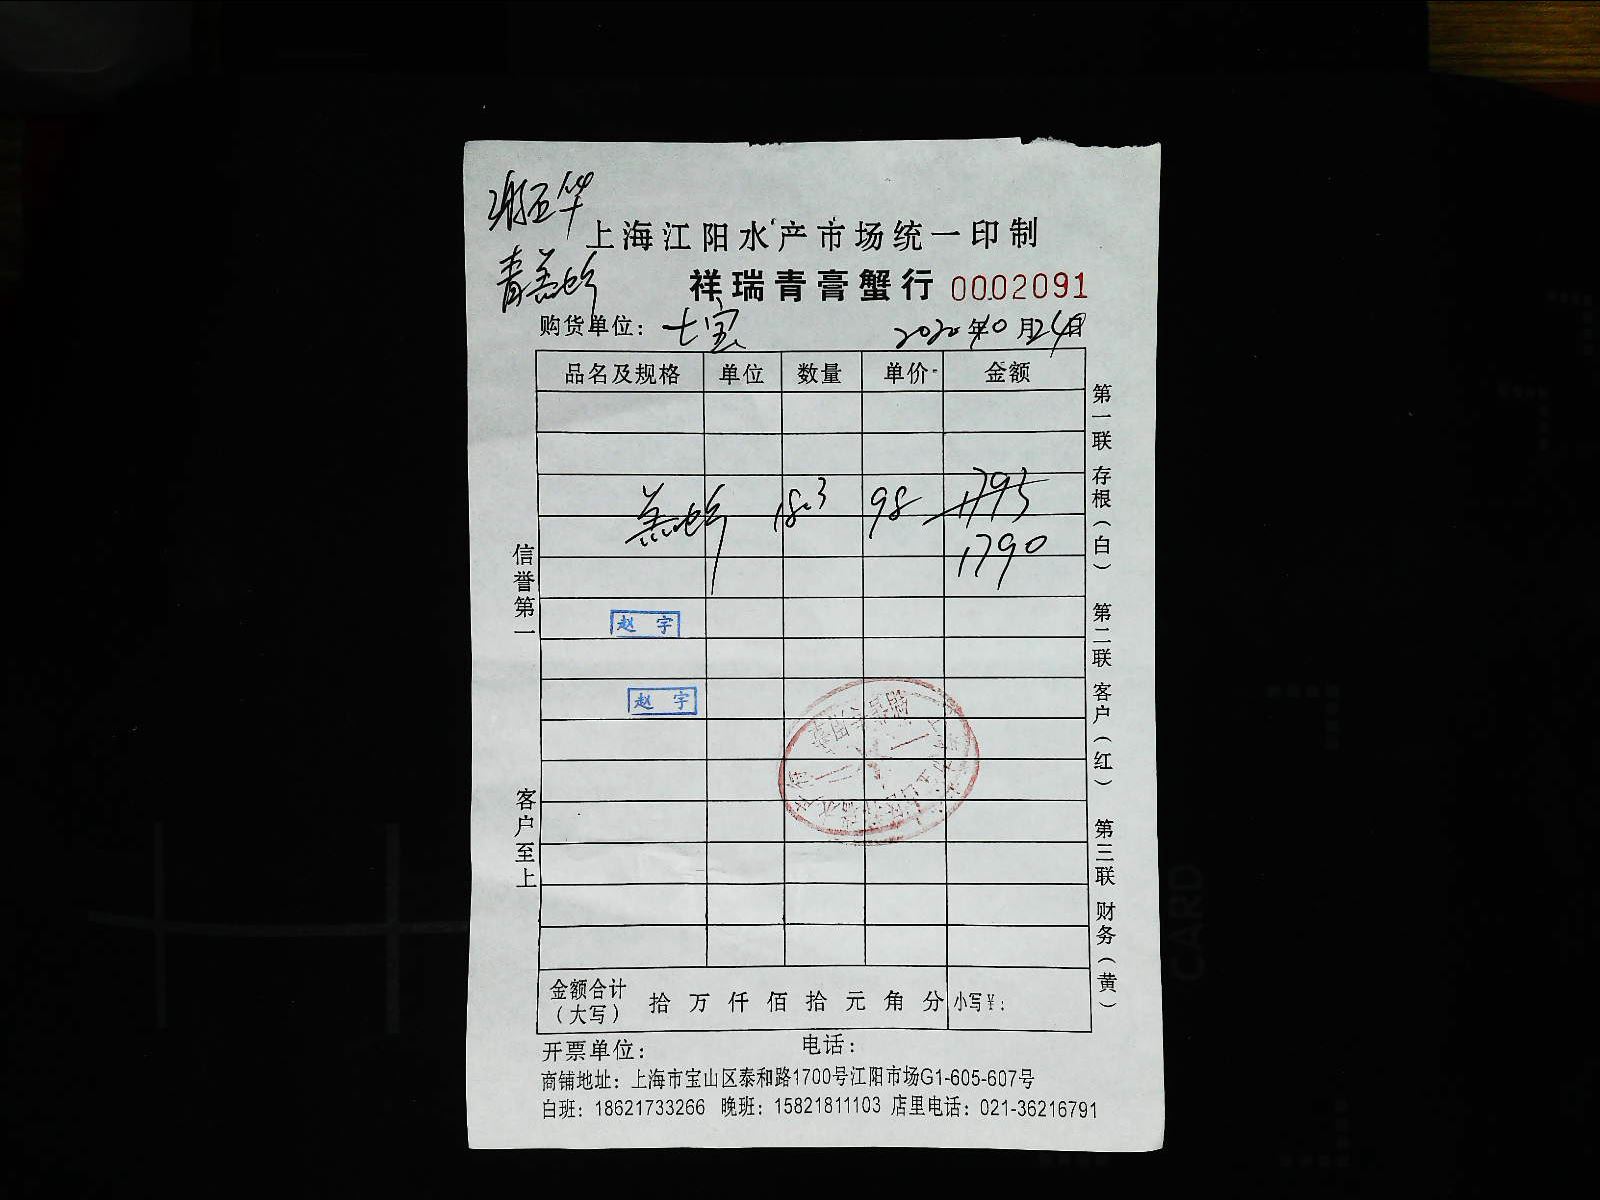 上海江阳水产市场统一印制
祥瑞青膏蟹行 0002091
购货单位：七宝 2020年10月24日
品名及规格 单位 数量 单价 金额
18.3 98 1793
1790
赵 宇
赵 宇
金额合计（大写） 拾 万 仟 佰 拾 元 角 分 小写￥：
开票单位： 电话：
商铺地址：上海市宝山区泰和路1700号江阳市场G1-605-607号
白班：18621733266 晚班：15821811103 店里电话：021-36216791
信誉第一
客户至上
第一联 存根（白） 第二联 客户（红） 第三联 财务（黄）